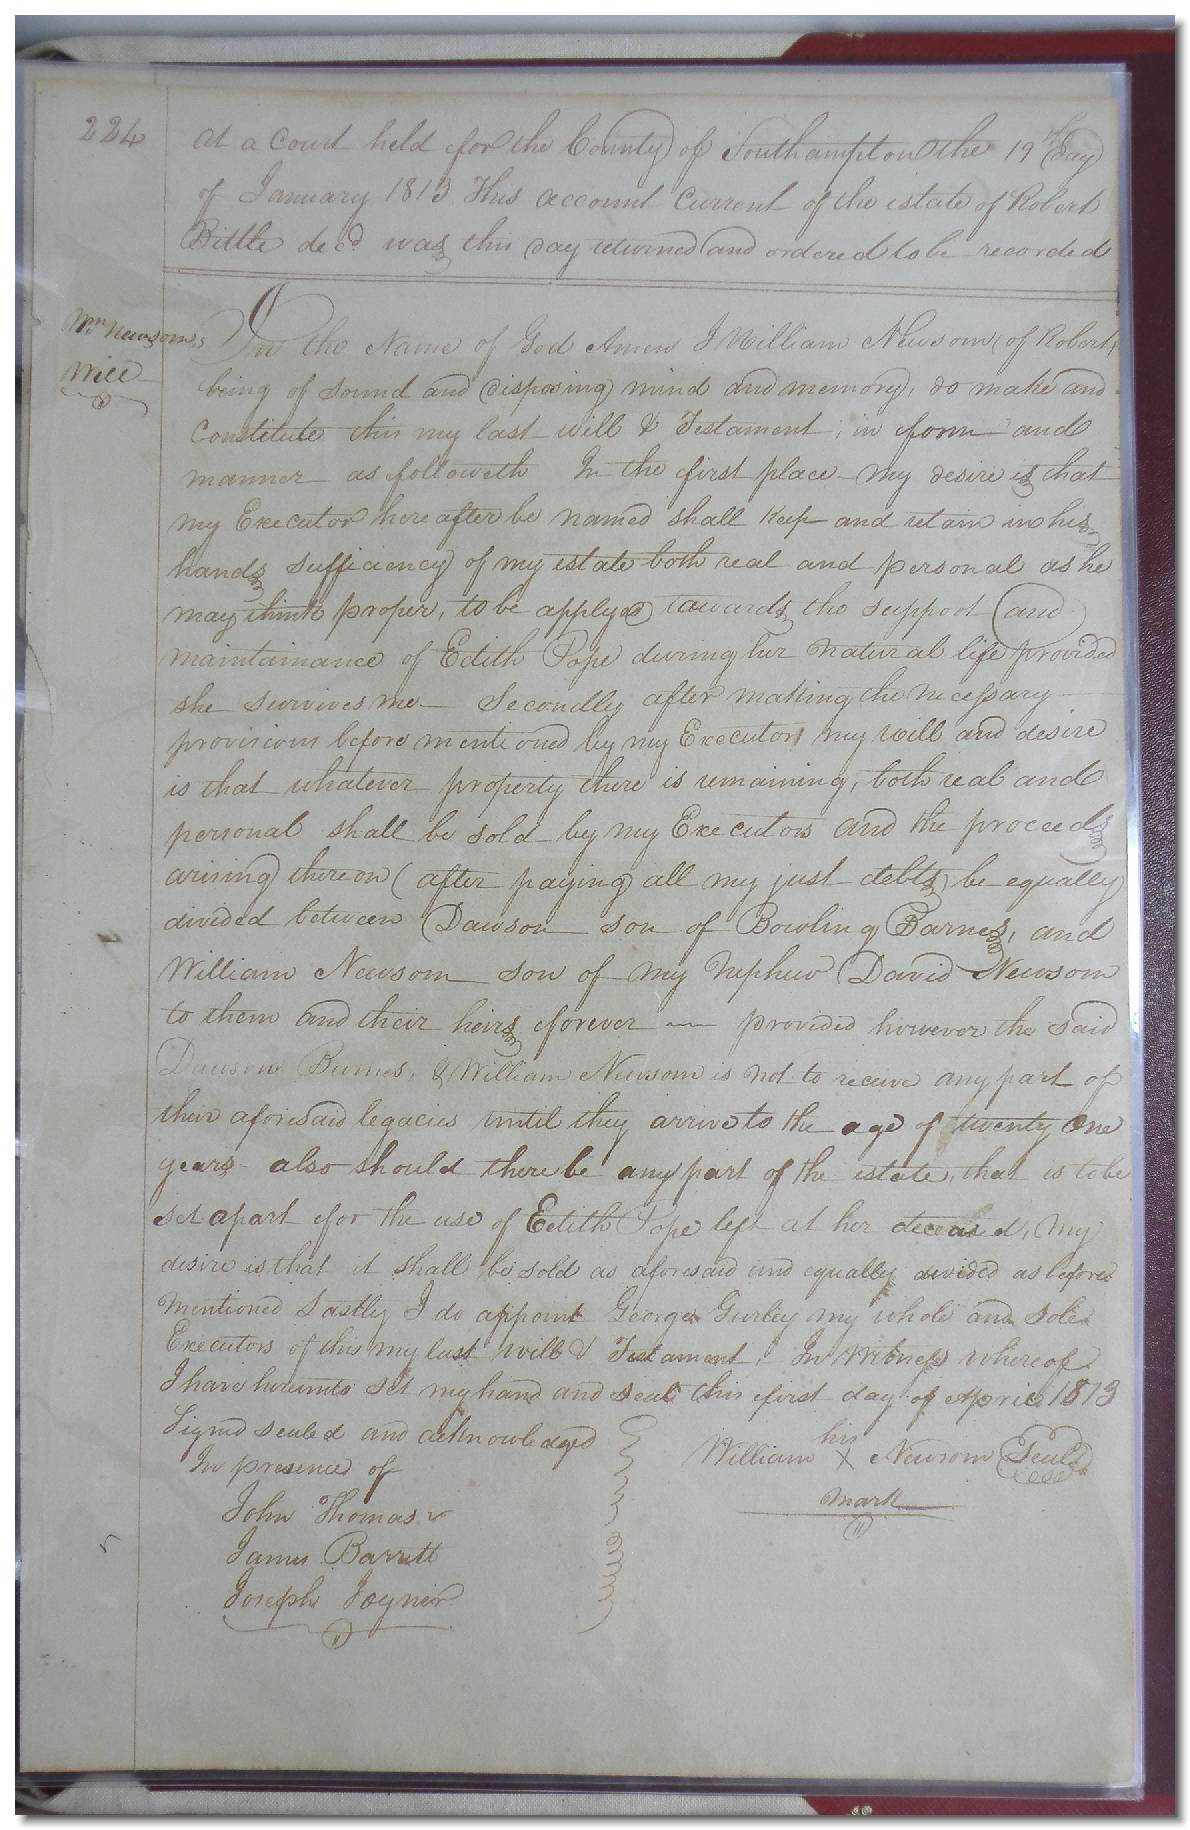 224
At a Court held for the County of Southampton the 19th Day
of January 1813 This account Current of the estate of Robert
Bittle decd was this day returned and ordered to be recorded
Wm Newsoms
Will
In the Name of God Amen I William Newsom (of Robert)
being of sound and disposing mind and memory, do make and
Constitute this my last will & Testament, in form and
manner as followeth In the first place my desire is that
my Executor hereafter be named shall Keep and retain in his
hands sufficiency of my estate both real and personal as he
may think proper, to be applyed towards the support and
maintainance of Edith Pope during her natural life provided
she survives me — Secondly after making the necessary
provisions before mentioned by my Executors my will and desire
is that whatever property there is remaining, both real and
personal shall be sold by my Executors and the proceeds
arising thereon (after paying all my just debts) be equally
divided between Dawson son of Bowling Barnes, and
William Newsom son of my Nephew David Newsom
to them and their heirs forever — provided however the said
Dawson Barnes, & William Newsom is not to receive any part of
their aforesaid legacies until they arrive to the age of twenty one
years - also should there be any part of the estate, that is to be
set apart for the use of Edith Pope left at her deceased, my
desire is that it shall be sold as aforesaid and equally divided as before
mentioned Lastly I do appoint George Gurley my whole and sole
Executors of this my last will & Testament. In Witness whereof
I have hereunto set my hand and seal this first day of April 1813
Signed sealed and acknowledged
In presence of
John Thomas
James Barrett
Joseph Joyner
his
William X Newsom Seal
mark